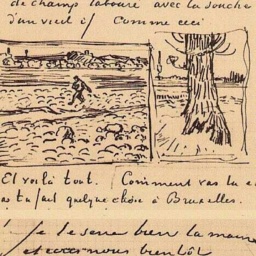 de champ labouré avec la souche
d'un vieil if / Comme ceci
Et voilà tout. / Comment vas tu e
as tu fait quelque chose à Bruxelles.
Je te serre bien la main
et